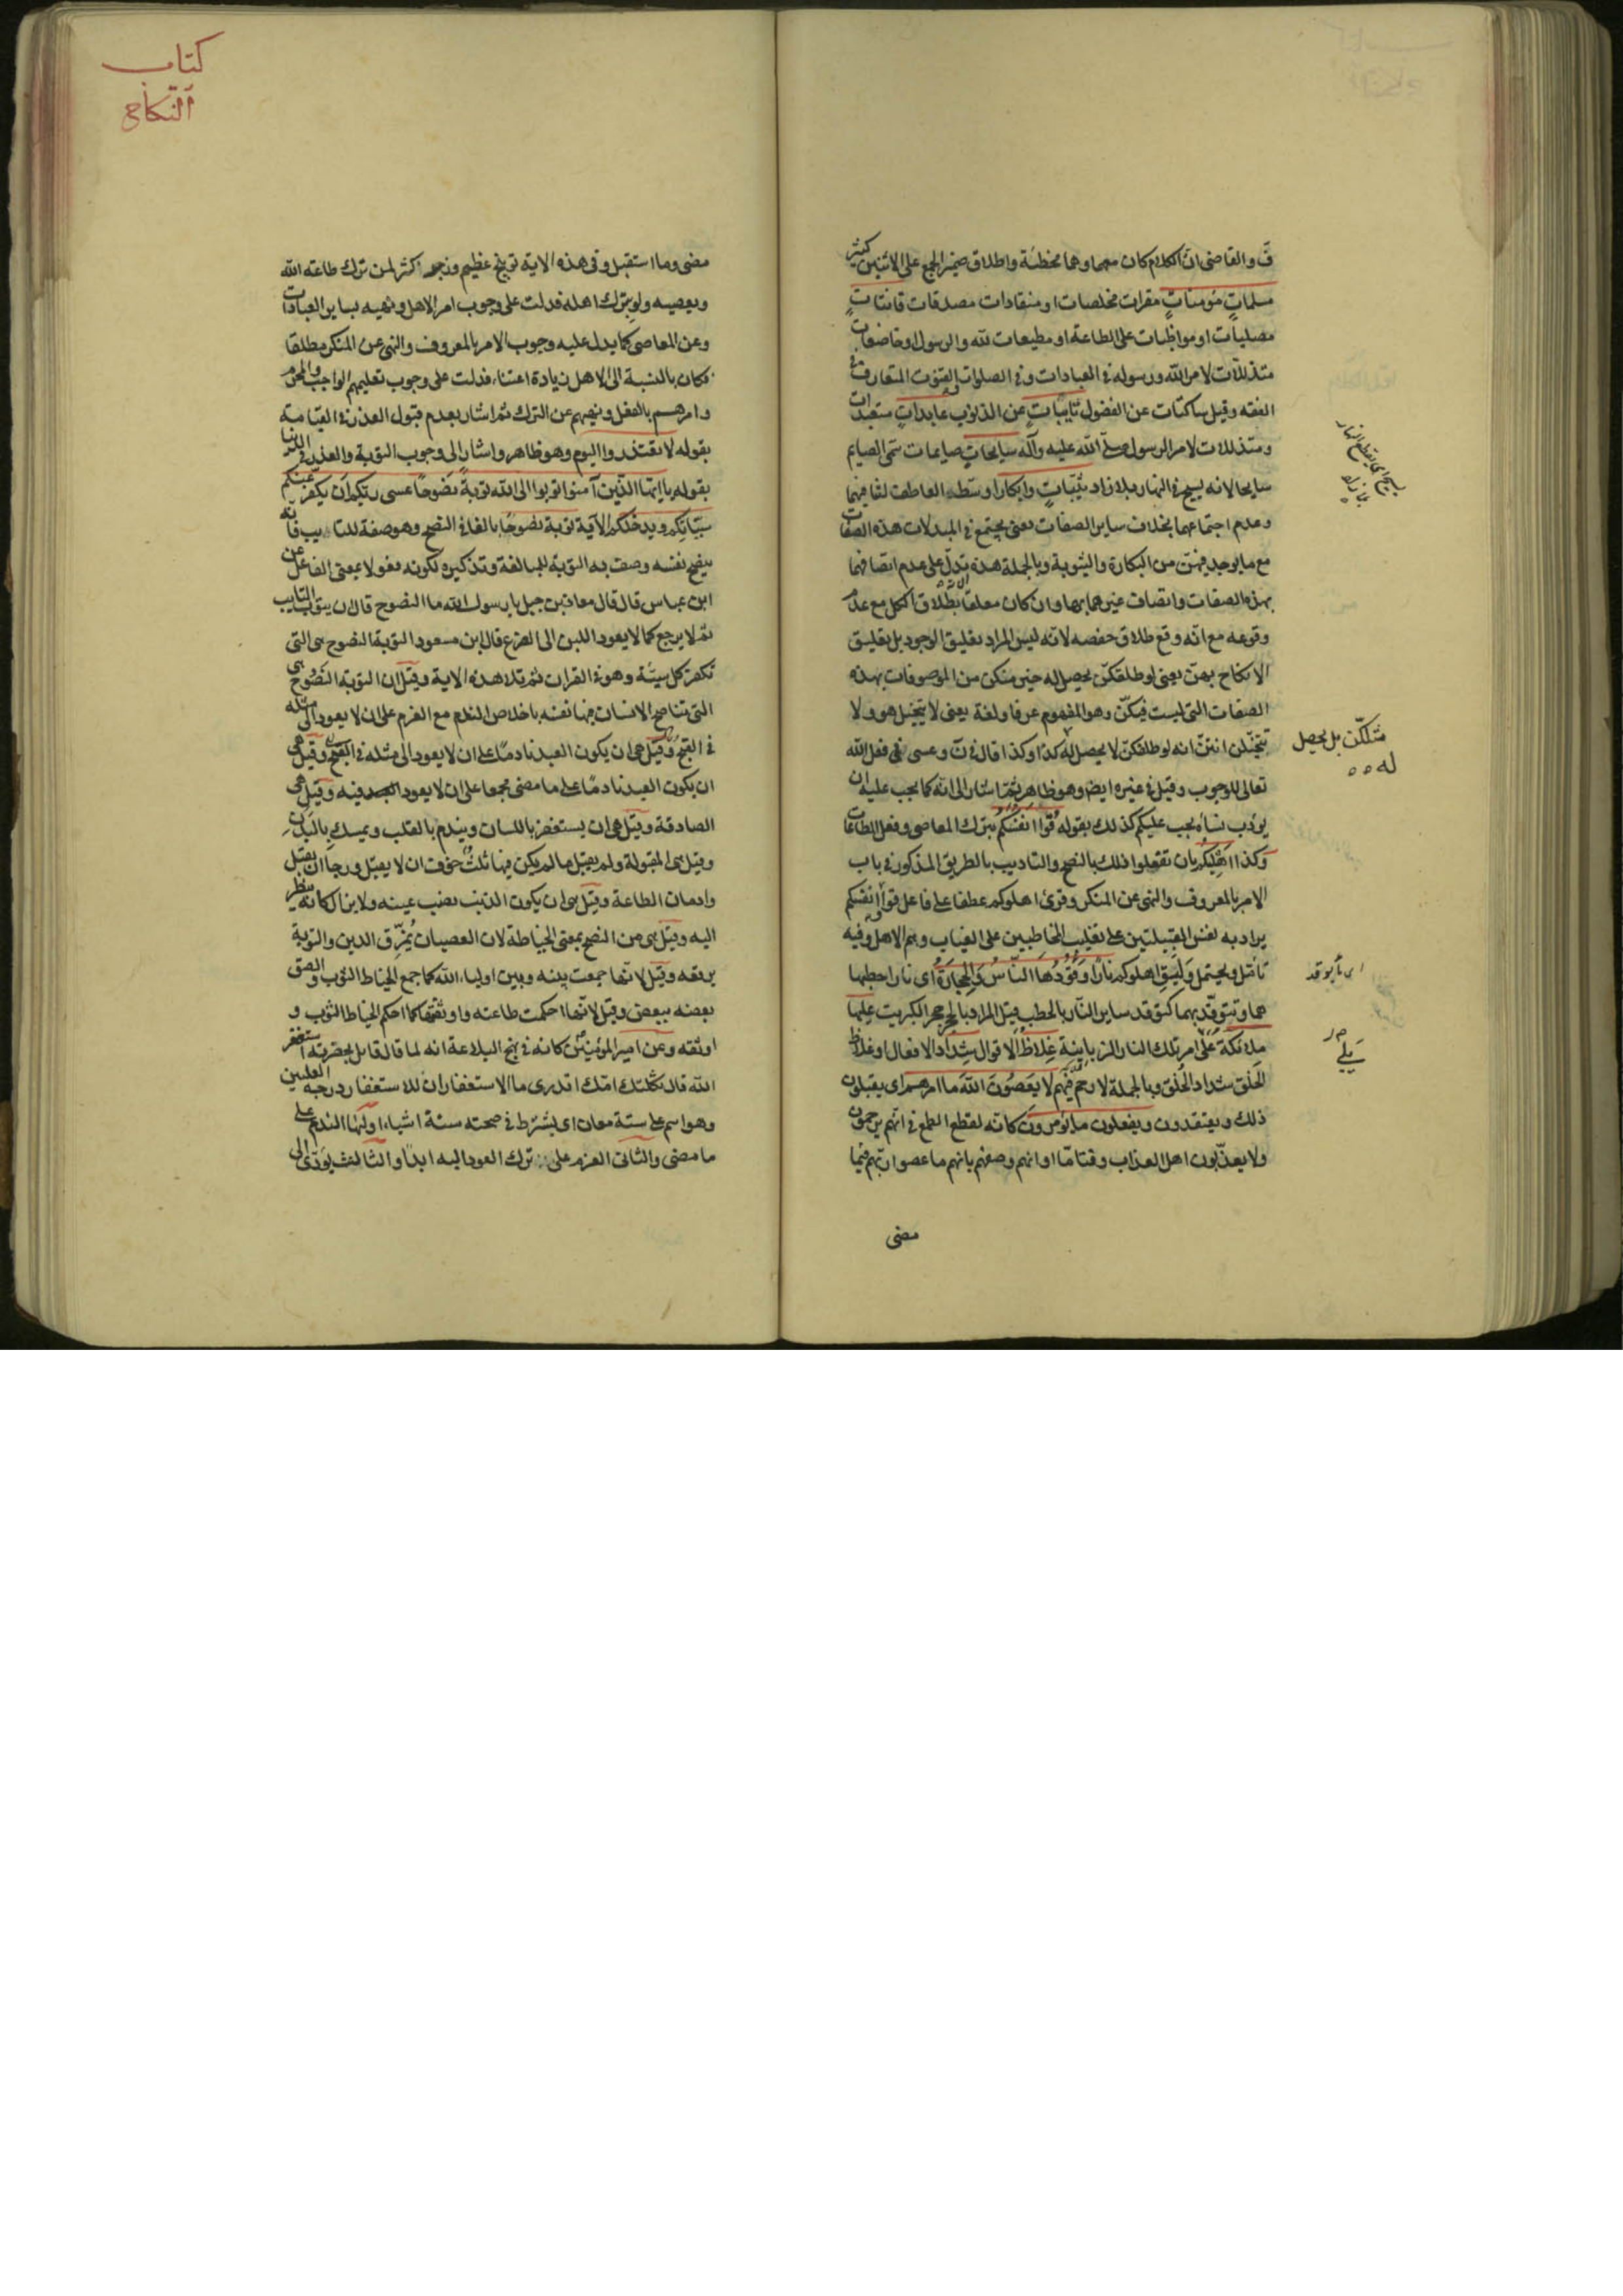 ق والقاضی ان الکلام کان معهما وهما مخطئة واطلاق ضمیر الجمع علی الاثنین کثیر
مسلماتٍ مؤمناتٍ مقرات مخلصات او منقادات مصدقات قانتاتٍ
مصلیات او مواظبات علی الطاعة او مطیعات لله والرسول او خاضعات
متذللات لامر الله ورسوله فی العبادات وفی الصلوات القنوت المتعارف فی
الفقه وقیل ساکتات عن الفضول تائباتٍ عن الذنوب عابداتٍ متعبدات
ومتذللات لامر الرسول صلی الله علیه وآله سایحاتٍ صایمات سمی الصایم
سایحا لانه یسیح فی النهار بلا زاد ثیّباتٍ وابکارا وسّطه العاطف لتنافیهما
وعدم اجتماعهما بخلاف سایر الصفات یعنی یجتمع فی المبدلات هذه الصفات
مع مایوجد فیهنّ من البکارة والثیوبة وبالجملة هذه الآیة تدلّ علی عدم اتصافهما
بهذه الصفات واتصاف غیرهما بها وان کان معلقا بطلاق الکل مع عدم
وقوعه مع انّه وقع طلاق حفصه لانّه لیس المراد تعلیق الوجود بل تعلیق
الانکاح بهنّ یعنی لو طلقکنّ یحصل له خیر منکن من الموصوفات بهذه
الصفات التی لیست فیکنّ وهو المفهوم عرفا ولغة یعنی لا یتخیل هو ولا
تتخیّلن انتنّ انه لو طلقکنّ لا یحصل له کذا وکذا قال فی ن وعسی فی فعل الله
تعالی للوجوب وقیل فی غیره ایض وهو ظاهر ثمّ اشار الی انّه کما یجب علیه ان
یؤدب نساءه یجب علیکم کذلك بقوله قُوا اَنفُسَکُم بترك المعاصی وفعل الطاعات
وکذا اَهلِیکُم بان تفعلوا ذلك بالنصح والتادیب بالطریق المذکور فی باب
الامر بالمعروف والنهی عن المنکر وقرئ اهلوکم عطفا علی فاعل قوا وانفسکم
یراد به نفس القبیلتین علی تغلیب المخاطبین علی الغیاب وهم الاهل وفیه
تأمّل ویحتمل ولیق اهلوکم نارًا وَقُودُهَا النّاسُ وَالحِجَارَةُ ای نارا حطبها
هما وتتوقّد بهما کتوقد سایر النّار بالحطب قیل المراد بالحجر حجر الکبریت علیها
ملائکة علی امر تلك النار الزبانیة غِلاظُ الاقوال شِدادُ الافعال او غلاظ
الخلق شداد الخُلق وبالجملة لا رحم فیهم لَا یَعصُونَ اللهَ ما امرهم ای یقبلون
ذلك ویعتقدون ویفعلون ما یؤمرون کانه لقطع الطمع فی انّهم یرحمون
ولا یعذّبون اهل العذاب وقتا مّا او انهم وصفهم بانهم ما عصوا ربّهم فیما
مضی
یسیح ای یقطع النهار
بلا زاد
مثلکنّ بل یحصل
له
ای ما یوقد
یلی
کتاب
النکاح
مضی وما استقبل وفی هذه الایة توبیخ عظیم وزجر اکثر لمن ترك طاعة الله
ویعصیه ولو بترك اهله فدلت علی وجوب امر الاهل ونهیه بسایر العبادات
وعن المعاصی کما یدل علیه وجوب الامر بالمعروف والنهی عن المنکر مطلقا
فکان بالنسبة الی الاهل زیادة اعتناء فدلت علی وجوب تعلیمهم الواجب والمحرم
وامرهم بالفعل ونهیهم عن الترك ثم اشار بعدم قبول العذر فی القیامة
بقوله لا تعتذروا الیوم وهو ظاهر واشار الی وجوب التوبة والعذر فی الدنیا
بقوله یا ایها الّذین آمنوا توبوا الی الله توبةً نصوحًا عسی ربّکم اَن یکفّر عنکم
سیّئاتکم ویدخلکم الآیة توبة نصوحًا بالغا فی النصح وهو صفة للتایب فانّه
ینصح نفسه وصف به التوبة للمبالغة وتذکیره لکونه فعولا بمعنی الفاعل عن
ابن عباس قال قال معاذ بن جبل یا رسول الله ما النصوح قال ان یتوب التایب
ثم لا یرجع کما لا یعود اللبن الی الضرع قال ابن مسعود التوبة النصوح هی التی
تکفر کل سیّئة وهو فی القران ثم تلا هذه الایة وقیل ان التوبة النصوح هی
التی یناصح الانسان فیها نفسه باخلاص الندم مع العزم علی ان لا یعود الی مثله
فی القبح وقیل هی ان یکون العبد نادمًا علی ان لا یعود الی مثله فی القبح وقیل هی
ان یکون العبد نادمًا علی ما مضی مجمعا علی ان لا یعود فیه وقیل هی
الصادقة وقیل هی ان یستغفر باللسان ویندم بالقلب ویمسك بالبدن
وقیل هی المقبولة ولم یقبل ما لم یکن فیها ثلث خوف ان لا یقبل ورجا ان یقبل
وادمان الطاعة وقیل هی ان یکون الذنب نصب عینه ولا یزال کانّه ینظر
الیه وقیل هی من النصح بمعنی الخیاطة لان العصیان یُمزّق الدین والتوبة
یرتقه وقیل لانّها جمعت بینه وبین اولیاء الله کما جمع الخیاط الثوب والصق
بعضه ببعض وقیل لانّها احکمت طاعته واوثقتها کما احکم الخیاط الثوب و
اوثقه وعن امیر المؤمنین کانه فی نهج البلاغة انه لما قال قائل بحضرته استغفر
الله قال ثکلتك امّك اتدری ما الاستغفار ان للاستغفار درجة العلیین
وهو اسم علی ستة معان ای یشترط فی صحته ستة اشیاء اوّلها الندم علی
ما مضی والثانی العزم علی ترك العود الیه ابدًا والثالث یؤدّی الی